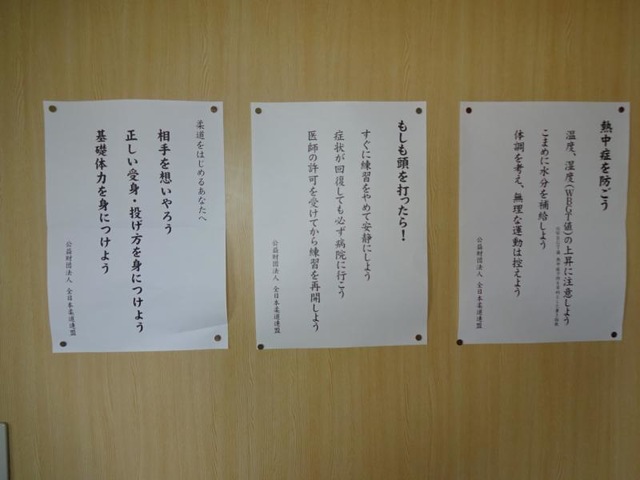 熱中症を防ごう
温度、湿度(WBGT値)の上昇に注意しよう
こまめに水分を補給しよう
体調を考え、無理な運動は控えよう
公益財団法人 全日本柔道連盟
もしも頭を打ったら！
すぐに練習をやめて安静にしよう
症状が回復しても必ず病院に行こう
医師の許可を受けてから練習を再開しよう
公益財団法人 全日本柔道連盟
柔道をはじめるあなたへ
相手を想いやろう
正しい受身・投げ方を身につけよう
基礎体力を身につけよう
公益財団法人 全日本柔道連盟